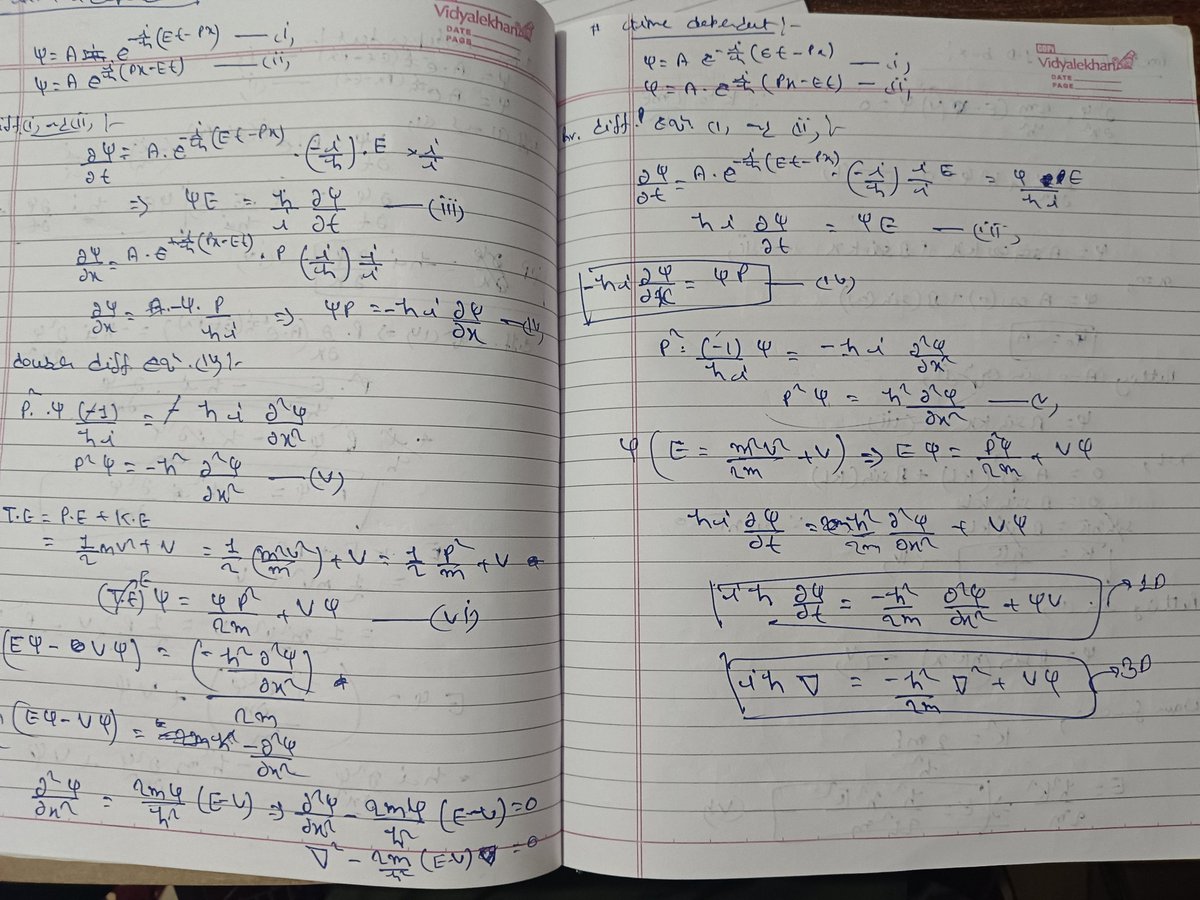 Vidyalekhan
DATE
PAGE
ψ = A e^{-i/ħ (Et-Px)} — (i,
ψ = A e^{i/ħ (Px-Et)} — (ii,
diff (i, (ii, :-
∂ψ/∂t = A. e^{-i/ħ (Et-Px)} . (-i/ħ) . E × i/i
⇒ ψE = ħ/i ∂ψ/∂t — (iii)
∂ψ/∂x = A. e^{+i/ħ (Px-Et)} . P (i/ħ) i/i
∂ψ/∂x = A. -ψ. P/ħi ⇒ ψP = -ħi ∂ψ/∂x — (iv
double diff eqn. (iv) :-
P². ψ (-1)/ħi = - ħi ∂²ψ/∂x²
P²ψ = -ħ² ∂²ψ/∂x² — (v)
T.E = P.E + K.E
= 1/2 mv² + V = 1/2 (m²v²/m) + V = 1/2 P²/m + V
E
(T.E) ψ = ψP²/2m + Vψ — (vi)
(Eψ - Vψ) = (-ħ² ∂²ψ/∂x²)/2m
(Eψ - Vψ) = -∂²ψ/∂x²
∂²ψ/∂x² = 2mψ/ħ² (E-V) ⇒ ∂²ψ/∂x² - 2mψ/ħ² (E-V) = 0
∇² - 2m/ħ² (E-V) = 0
# time dependent :-
COPY
Vidyalekhan
DATE
PAGE
ψ = A e^{-i/ħ (Et-Px)} — i,
ψ = A. e^{i/ħ (Px-Et)} — ii,
diff. eqn (i, (ii, :-
∂ψ/∂t = A. e^{-i/ħ (Et-Px)} . (-i/ħ) i/i E = ψ E/ħi
ħi ∂ψ/∂t = ψE — (iii,
-ħi ∂ψ/∂x = ψP — (iv)
P². (-1)/ħi ψ = -ħi ∂²ψ/∂x²
P²ψ = ħ² ∂²ψ/∂x² — (v,
ψ (E = m²v²/2m + V) ⇒ Eψ = P²ψ/2m + Vψ
ħi ∂ψ/∂t = ħ²/2m ∂²ψ/∂x² + Vψ
iħ ∂ψ/∂t = -ħ²/2m ∂²ψ/∂x² + ψV → 1D
iħ ∇ = -ħ²/2m ∇² + Vψ → 3D